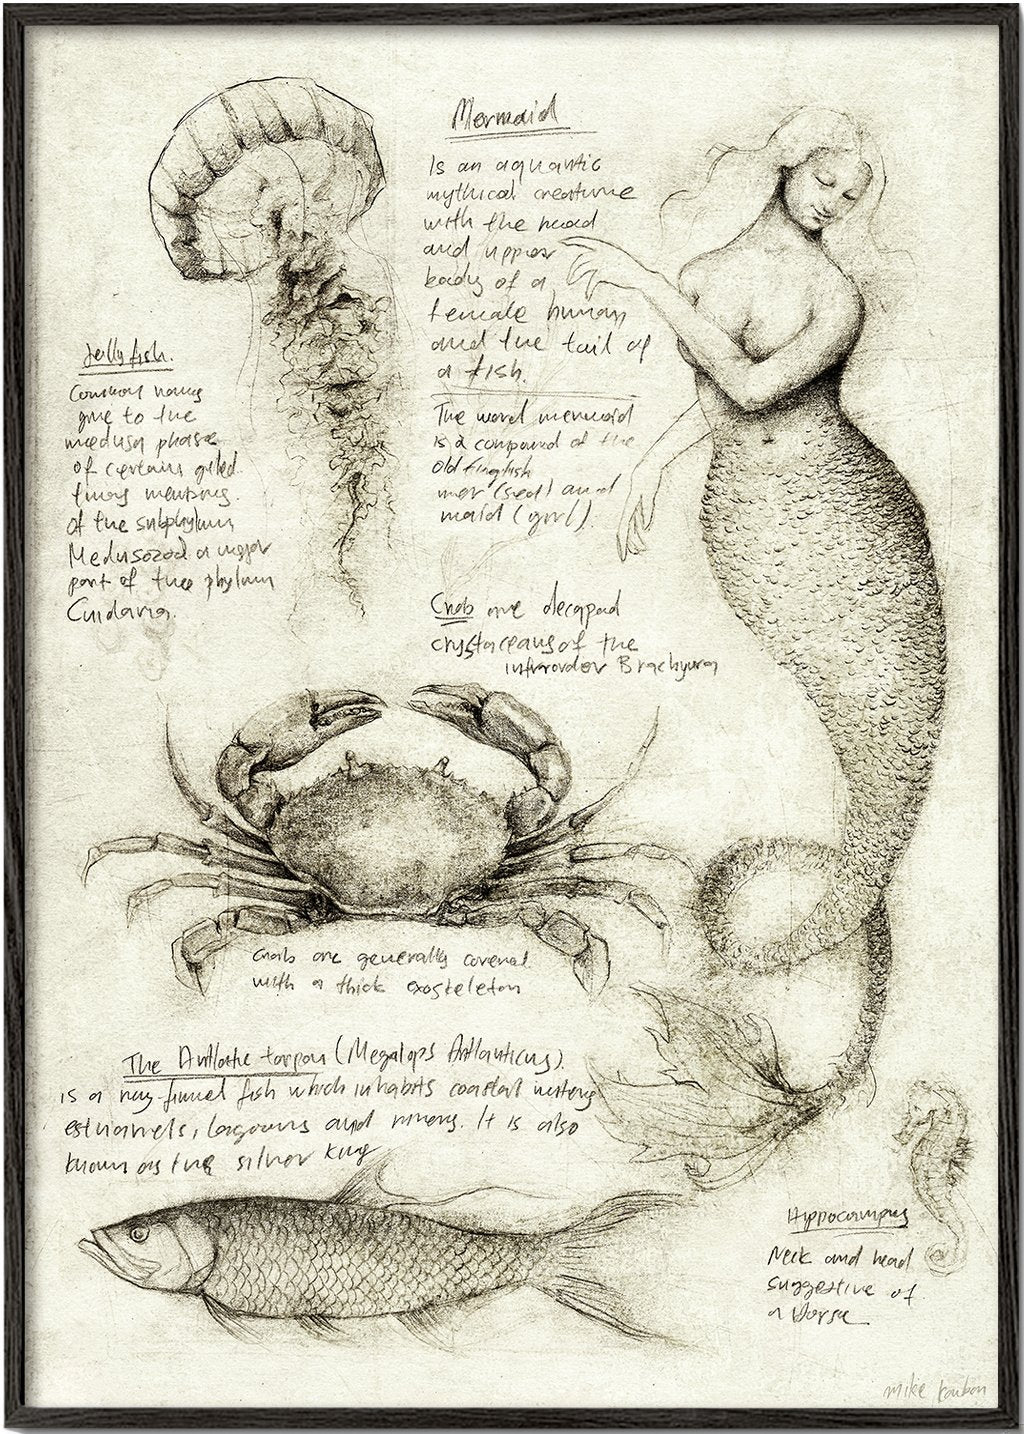 Mermaid
Is an aquantic
mythical creature
with the head
and upper
body of a
female human
and the tail of
a fish.
The word mermaid
is a compound of the
old English
mer (sea) and
maid (girl).
Jelly fish.
Common names
give to the
medusa phase
of certain
of the subphylum
Medusozoa a major
part of the phylum
Cnidaria.
Crab are decapod
crystaceans of the
infraorder Brachyura
Crab are generally covered
with a thick exosteleton
The Antlantic tarpon (Megalops Atlanticus).
is a ray-finned fish which inhabits coastal waters
estuariels, lagoons and rivers. It is also
known as the silver king
Hippocampus
Neck and head
suggestive of
a Horse
mike koubou